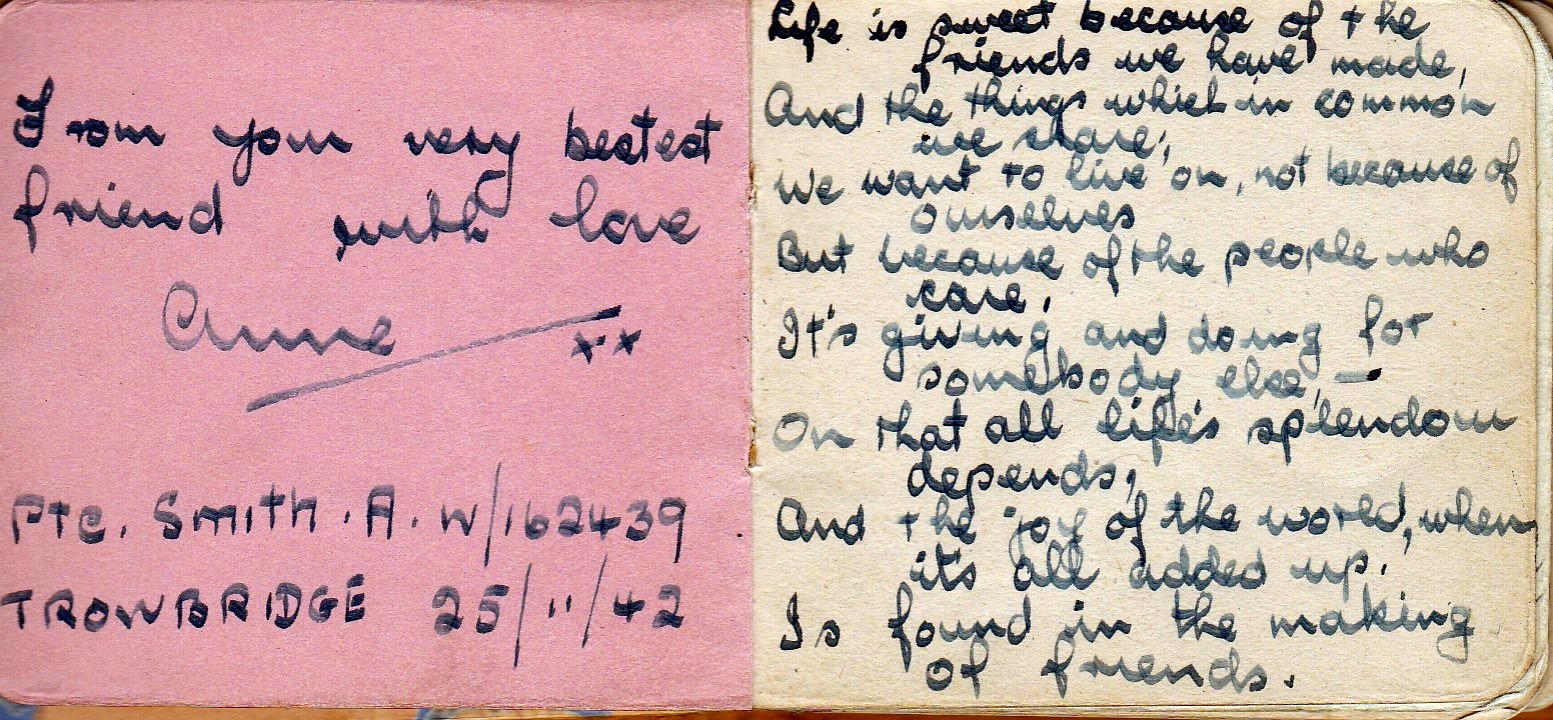 From your very bestest
friend with love
Anne
x x
Ptc. Smith. A. W/162439
TROWBRIDGE 25/11/42
Life is sweet because of the
friends we have made,
And the things which in common
we share;
We want to live on, not because of
ourselves
But because of the people who
care,
It's giving and doing for
somebody else, —
On that all life's splendour
depends,
And the joy of the world, when
it's all added up.
Is found in the making
of friends.